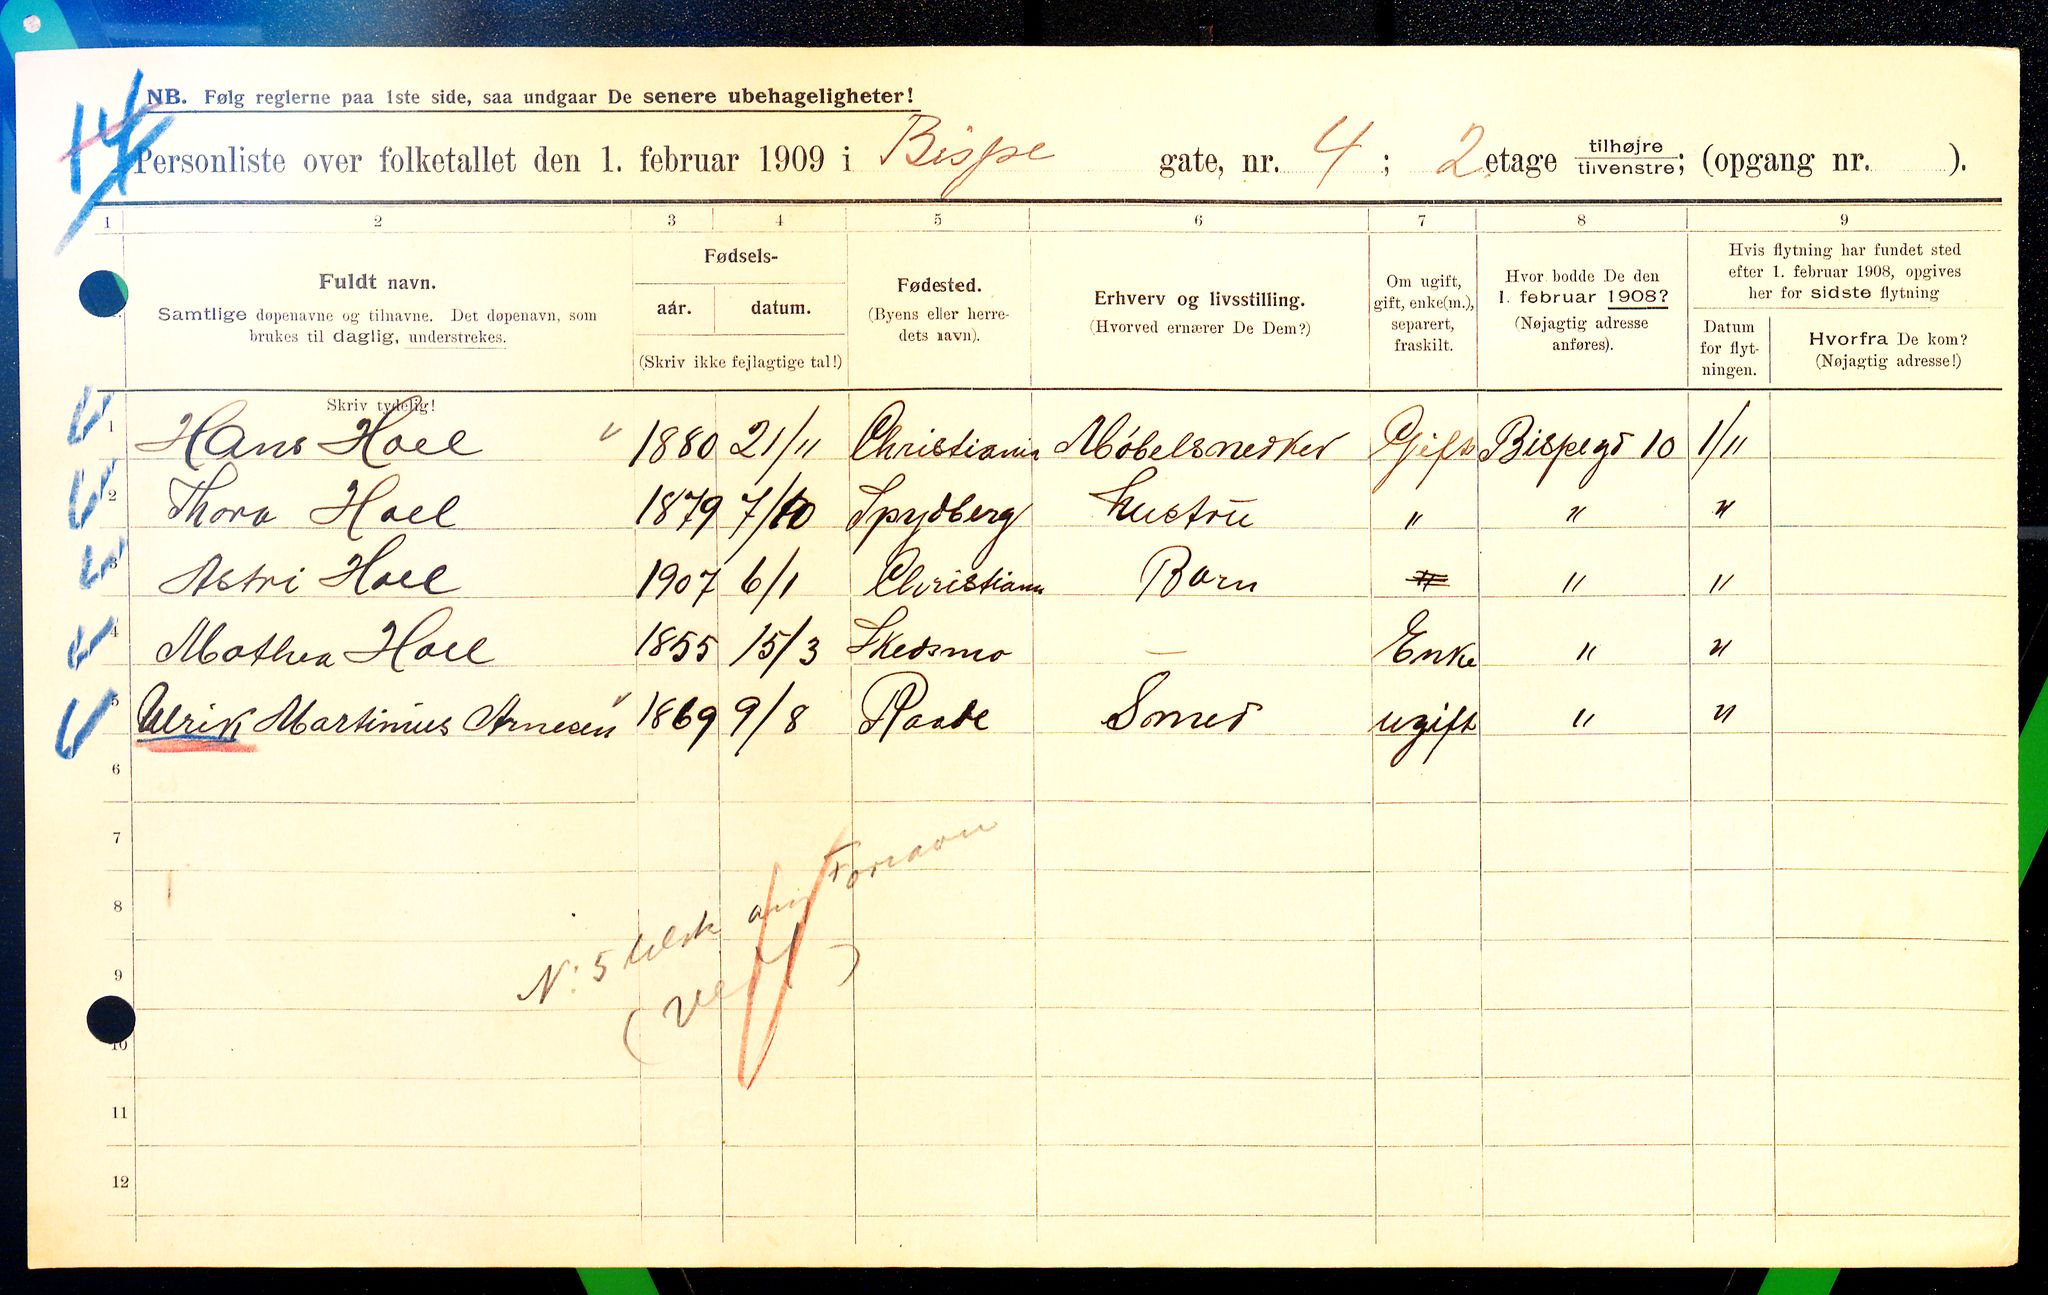 14
NB. Følg reglerne paa 1ste side, saa undgaar De senere ubehageligheter!
Personliste over folketallet den 1. februar 1909 i Bispe gate, nr. 4; 2 etage tilhøjre/tilvenstre; (opgang nr. ).
1 2 3 4 5 6 7 8 9
Fuldt navn.
Samtlige døpenavne og tilnavne. Det døpenavn, som
brukes til daglig, understrekes.
Fødsels-
aar. datum.
(Skriv ikke fejlagtige tal!)
Fødested.
(Byens eller herre-
dets navn).
Erhverv og livsstilling.
(Hvorved ernærer De Dem?)
Om ugift,
gift, enke(m.),
separert,
fraskilt.
Hvor bodde De den
1. februar 1908?
(Nøjagtig adresse
anføres).
Hvis flytning har fundet sted
efter 1. februar 1908, opgives
her for sidste flytning
Datum
for flyt-
ningen.
Hvorfra De kom?
(Nøjagtig adresse!)
Skriv tydelig!
1 Hans Hoel 1880 21/11 Christiania Møbelsnedker Gift Bispegd 10 1/11
2 Thora Hoel 1879 7/10 Spydberg hustru " " "
3 Astri Hoel 1907 6/1 Christiania Barn " "
4 Mathea Hoel 1855 15/3 Skedsmo — Enke " "
5 Ulrik Martinius Arnesen 1869 9/8 Raade Smed ugift " "
6
7
8
9
10
11
12
N: 5 Ulrik Fornavn